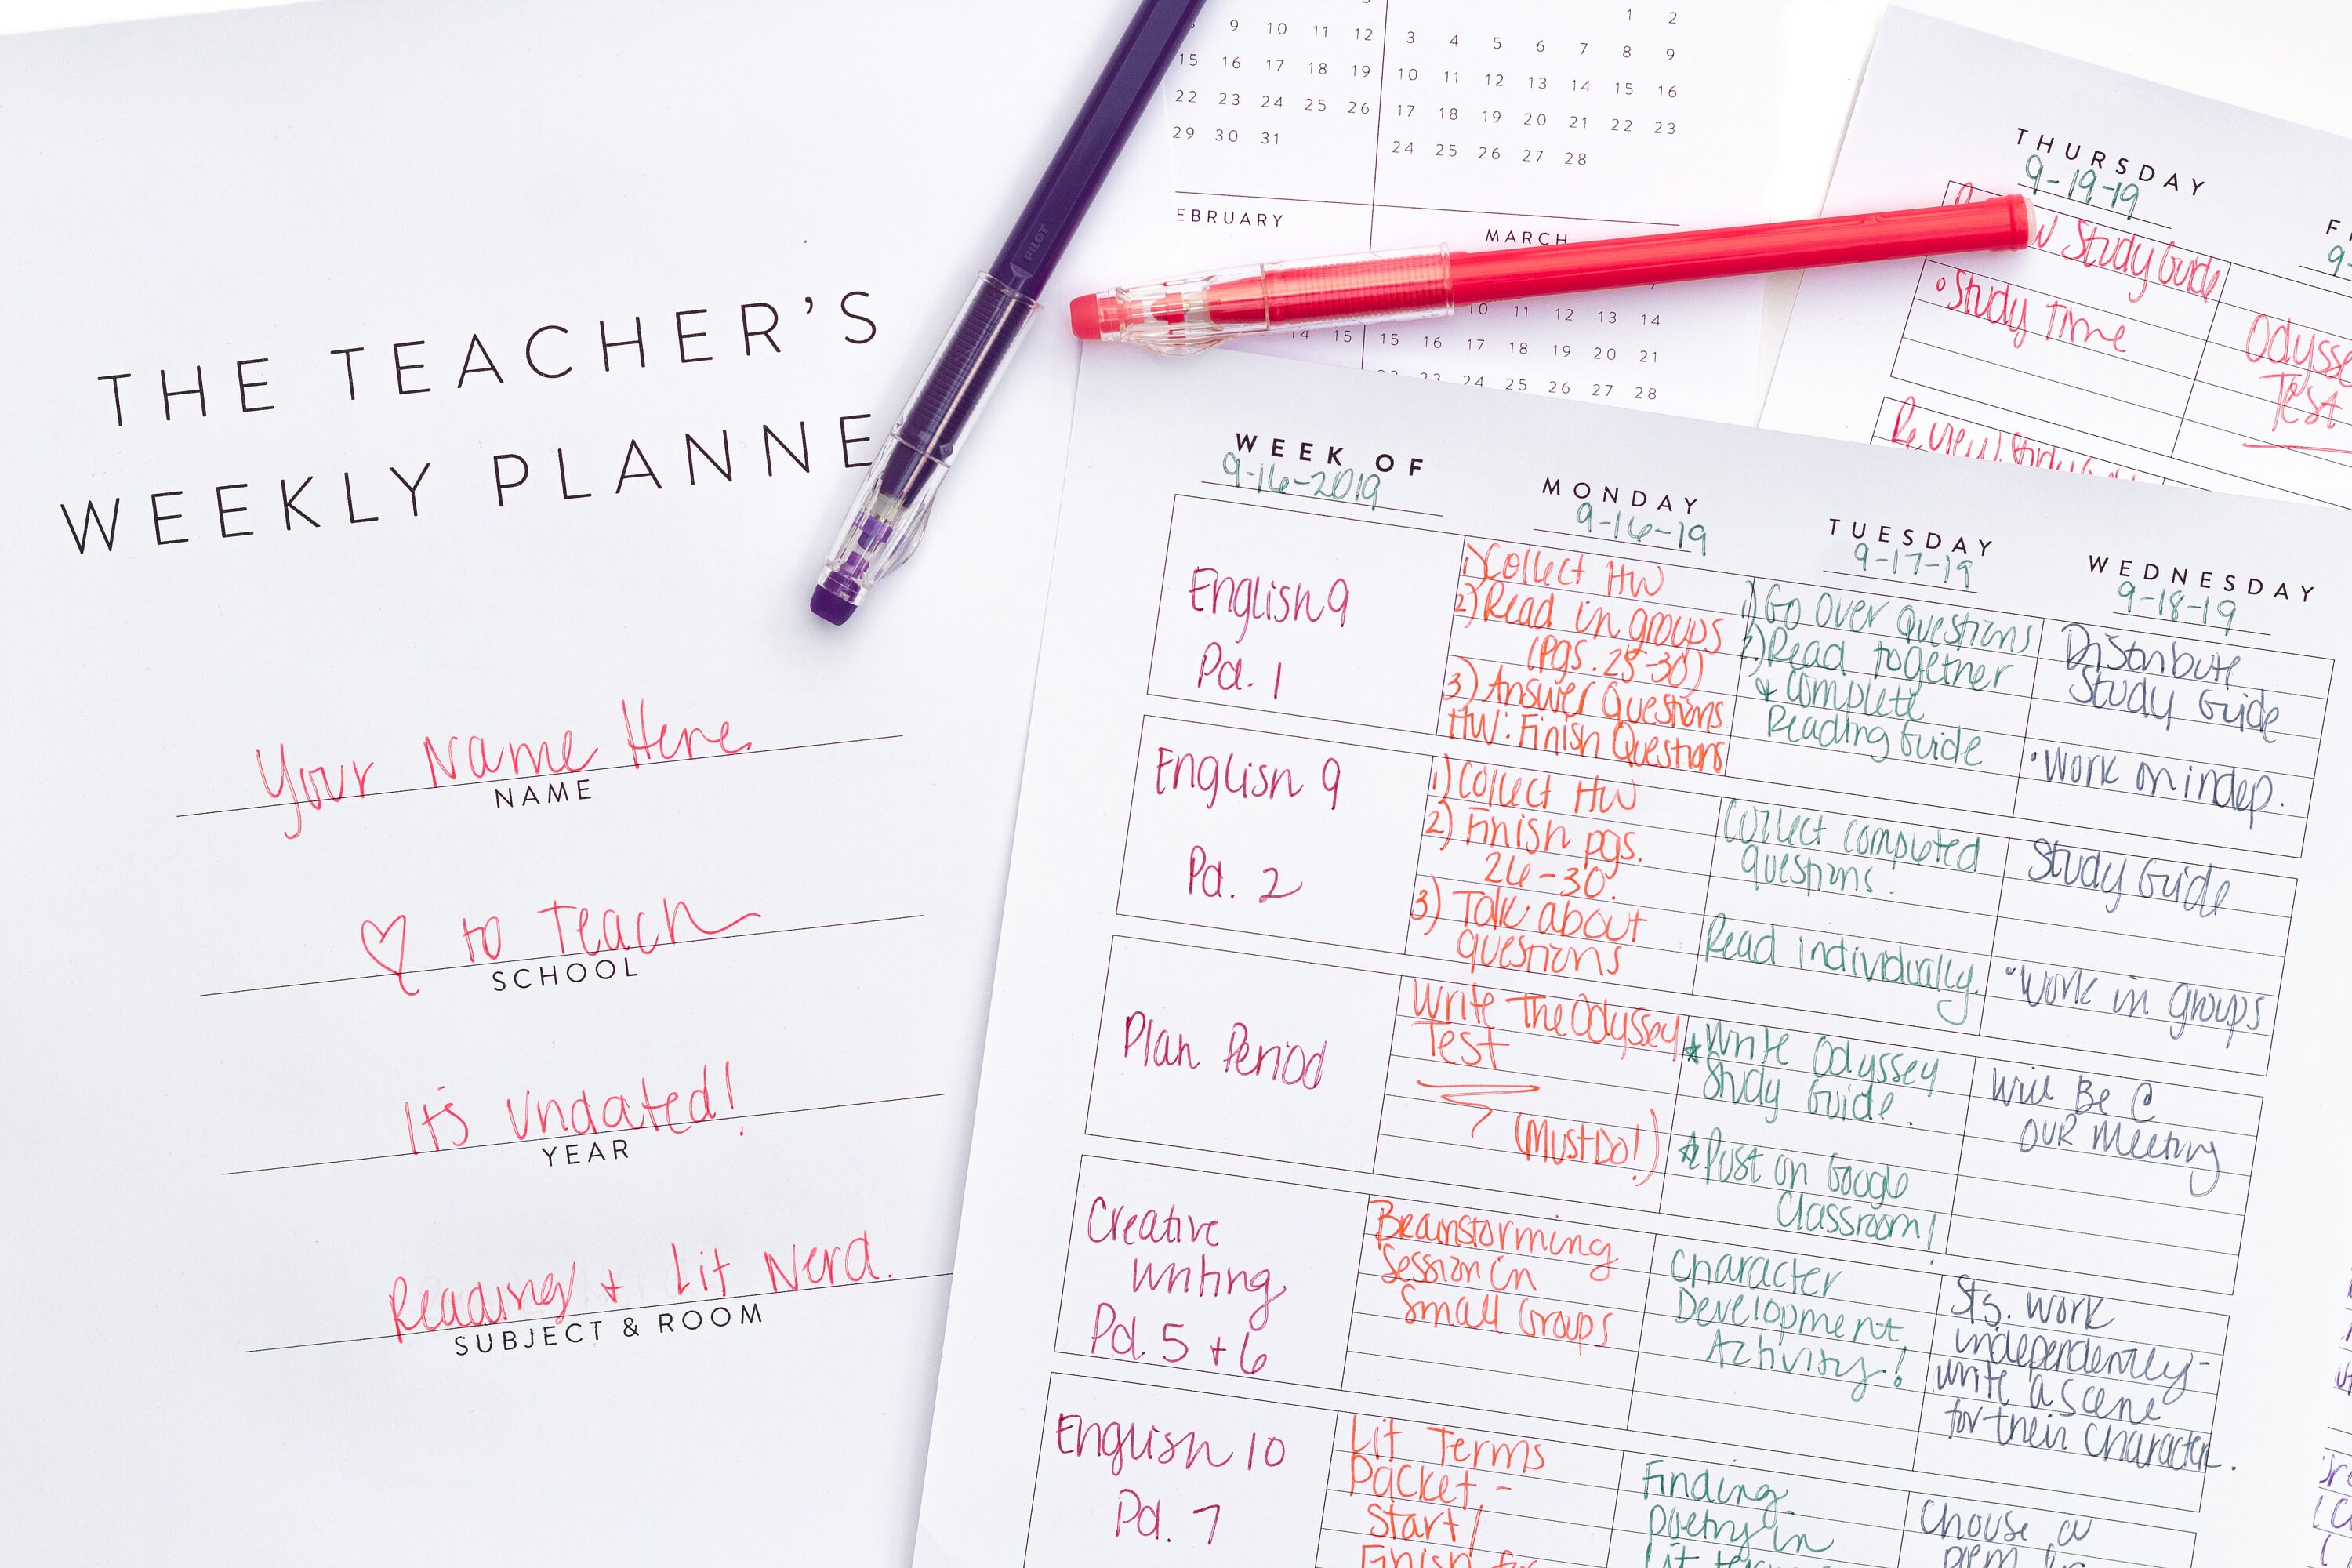 THE TEACHER'S
WEEKLY PLANNE
Your Name Here
NAME
♡ to Teach
SCHOOL
It's Undated!
YEAR
Reading + Lit Nerd.
SUBJECT & ROOM
PILOT
9 10 11 12
15 16 17 18 19
22 23 24 25 26
29 30 31
EBRUARY
14 15
1 2
3 4 5 6 7 8 9
10 11 12 13 14 15 16
17 18 19 20 21 22 23
24 25 26 27 28
MARCH
10 11 12 13 14
15 16 17 18 19 20 21
23 24 25 26 27 28
THURSDAY
9-19-19
Study Guide
• Study Time
Odysse
Test
Review Study
WEEK OF
9-16-2019
MONDAY
9-16-19
TUESDAY
9-17-19
WEDNESDAY
9-18-19
English 9
Pd. 1
1) Collect HW
2) Read in groups
(pgs. 25-30)
3) Answer Questions
HW: Finish Questions
1) Go Over Questions
2) Read together
& complete
Reading Guide
Distribute
Study Guide
• Work on indep.
English 9
Pd. 2
1) Collect HW
2) Finish pgs.
26-30.
3) Talk about
questions
Collect completed
questions.
Read individually.
Study Guide
• Work in groups
Plan Period
Write The Odyssey
Test
(Must Do!)
★ Write Odyssey
Study Guide.
★ Post on Google
Classroom!
Will Be @
OUR Meeting
Creative
Writing
Pd. 5 + 6
Brainstorming
Session in
Small Groups
Character
Development
Activity!
Sts. work
independently-
write a scene
for their character.
English 10
Pd. 7
Lit Terms
Packet -
Start/
Finish for
Finding
poetry in
Choose a